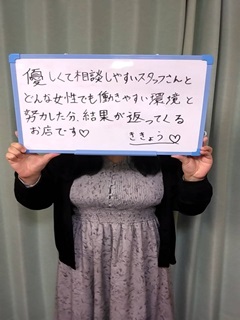 優しくて相談しやすいスタッフさんと
どんな女性でも働きやすい環境と
努力した分、結果が返ってくる
お店です♡
ききょう♡